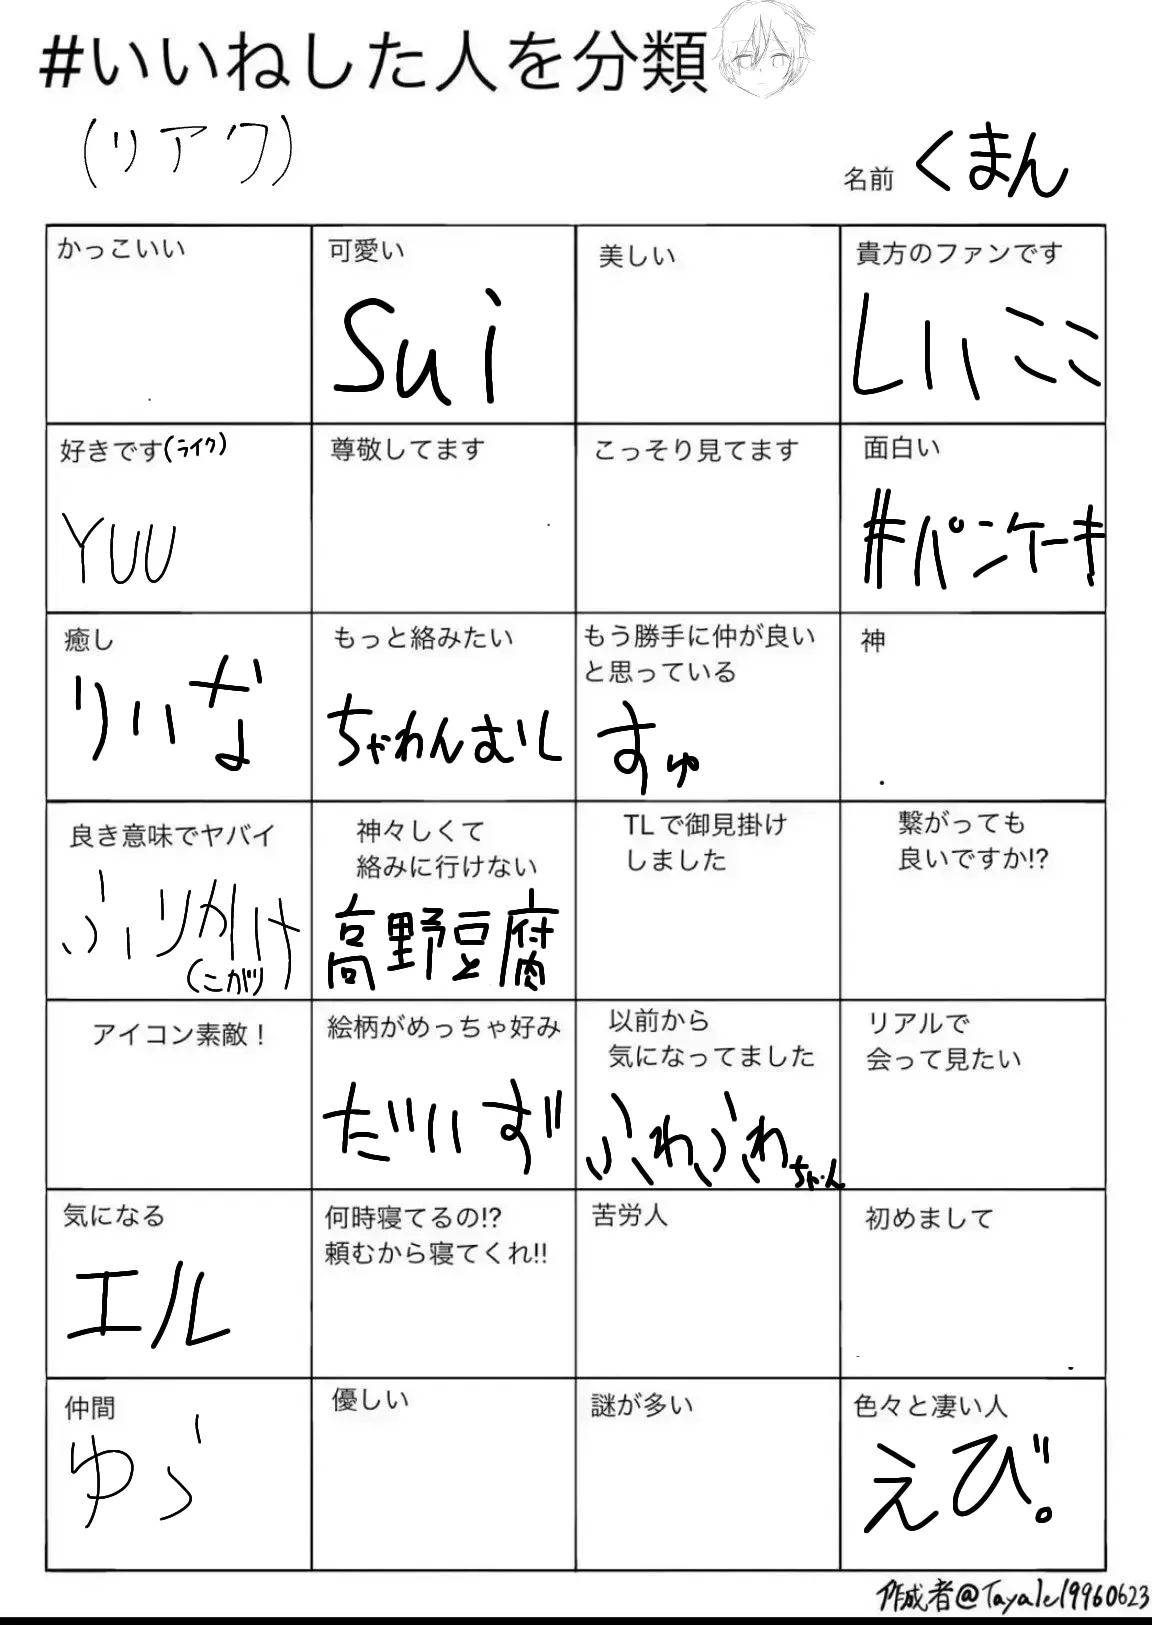 #いいねした人を分類
(リアク)
名前 くまん
かっこいい
可愛い
sui
美しい
貴方のファンです
しいここ
好きです(ライク)
YUU
尊敬してます
こっそり見てます
面白い
#パンケーキ
癒し
りいな
もっと絡みたい
ちゃわんむし
もう勝手に仲が良い
と思っている
すゅ
神
良き意味でヤバイ
ふりかけ
(こがり
神々しくて
絡みに行けない
高野豆腐
TLで御見掛け
しました
繋がっても
良いですか!?
アイコン素敵!
絵柄がめっちゃ好み
だいず
以前から
気になってました
ふわふわちゃん
リアルで
会って見たい
気になる
エル
何時寝てるの!?
頼むから寝てくれ!!
苦労人
初めまして
仲間
ゆら
優しい
謎が多い
色々と凄い人
えび。
作成者@Tayale19960623